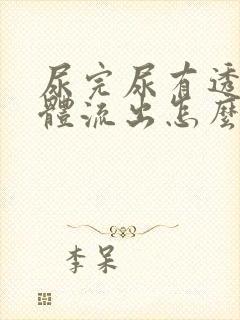 尿完尿有透
體流出怎麼
李呆